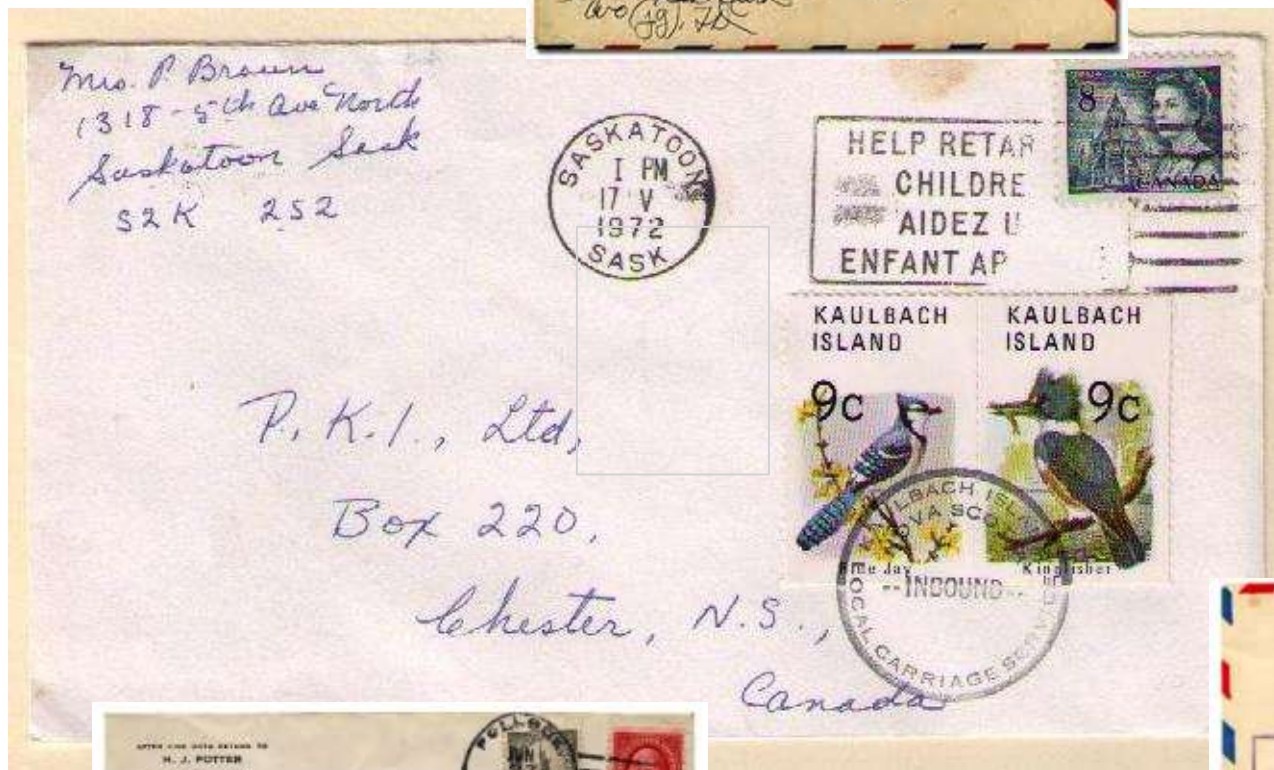 Mrs. P Brown
1318 - 5th Ave North
Saskatoon Sask
S2K 2S2
SASKATOON
1 PM
17 V
1972
SASK
HELP RETAR
CHILDRE
AIDEZ U
ENFANT AP
8
CANADA
KAULBACH ISLAND
9c
Blue Jay
KAULBACH ISLAND
9c
Kingfisher
KAULBACH ISL
NOVA SCO
--INBOUND--
LOCAL CARRIAGE SERVICE
P.K.I., Ltd,
Box 220,
Chester, N.S.,
Canada
AFTER FIVE DAYS RETURN TO
H. J. POTTER